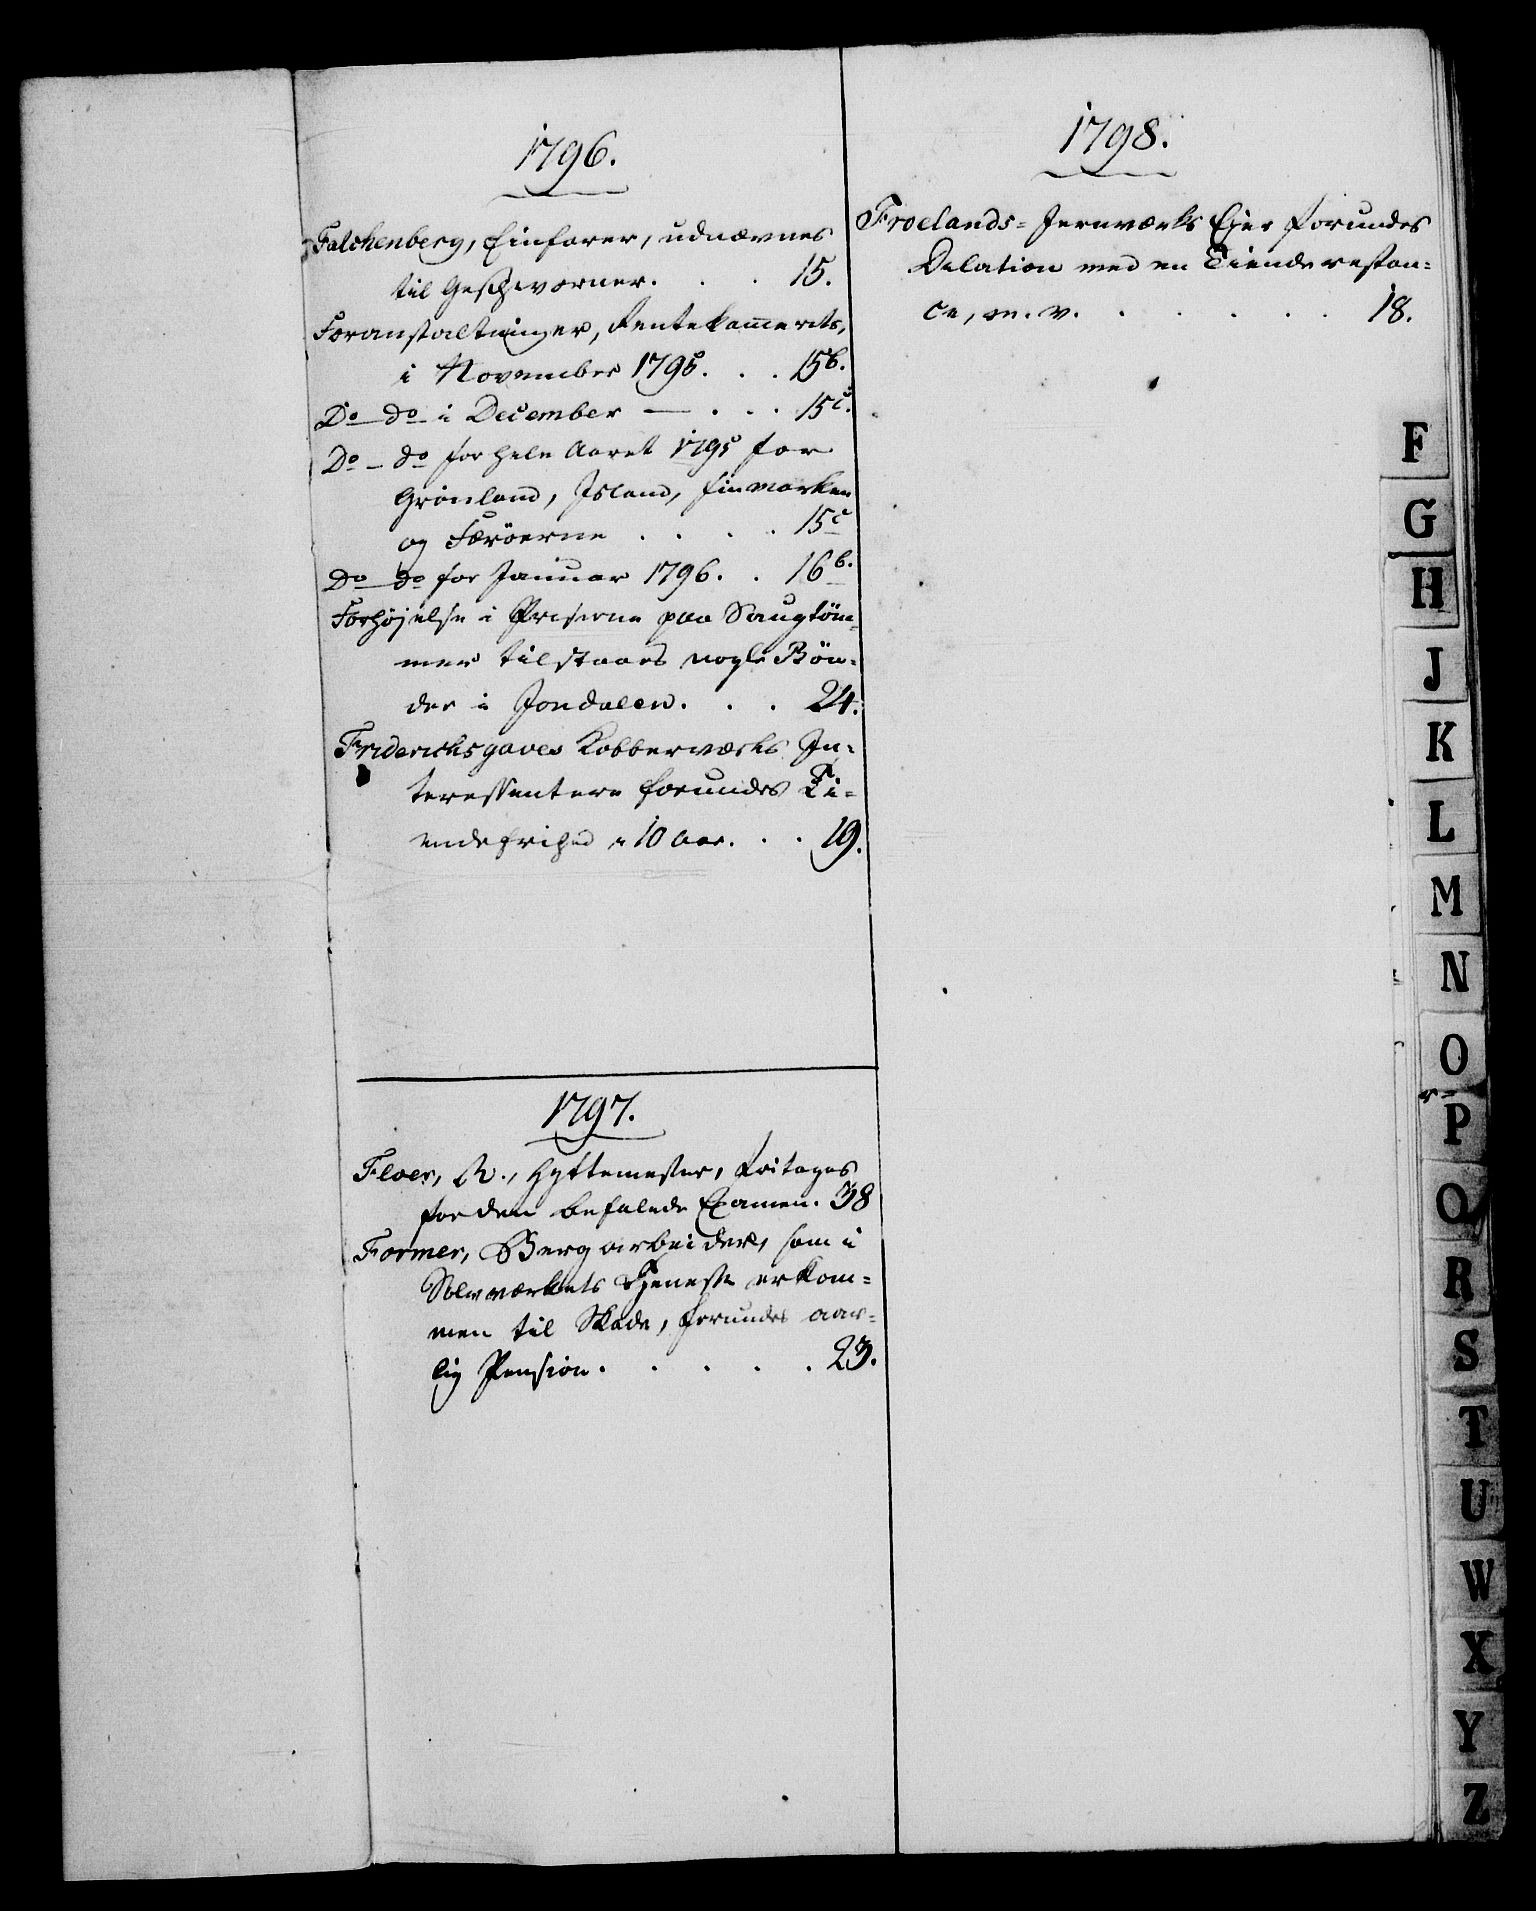 1796.
Falchenberg, Einfarer, udnævnes
til Geschworner. . . 15.
Foranstaltninger, Rentekammerets,
i November 1795. . . 15b.
Do do i December — . . . 15c.
Do do for hele Aaret 1795 for
Grönland, Island, Finmarken
og Færöerne . . . . 15c
Do do for Januar 1796. . 16b.
Forhøjelse i Priserne paa Saugtöm-
mer tilstaaes nogle Bön-
der i Jondalen. . . 24.
Friderichsgaves Kobberværks In-
teressentere forundes Ti-
endefrihed i 10 Aar. . . 19.
1797.
Floer, N., Hyttemester, fritages
for den befalede Examen. 38
Former, Bergarbeider, som i
Solvværkets Tjeneste er kom-
men til Skade, forundes aar-
lig Pension. . . . . 23.
1798.
Froelands-Jernværks Ejer forundes
Dilation med en Tienderestan-
ce, m. v. . . . . . 18.
F
G
H
J
K
L
M
N
O
P
Q
R
S
T
U
W
X
Y
Z